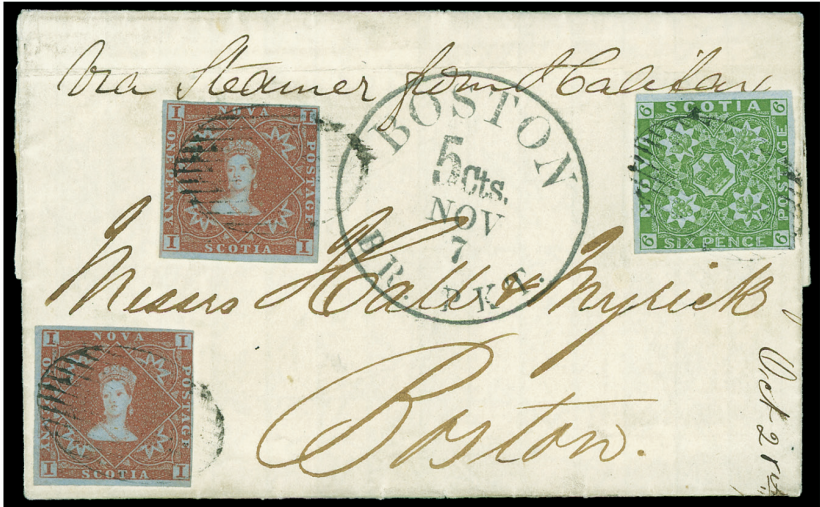 Via Steamer from Halifax
I NOVA I
ONE PENNY POSTAGE
I SCOTIA I
BOSTON
5 cts.
NOV
7
BR. PKT
6 SCOTIA 6
NOVA POSTAGE
6 SIX PENCE 6
Messrs Hall & Myrick
Boston.
I NOVA I
ONE PENNY POSTAGE
I SCOTIA I
Oct 2